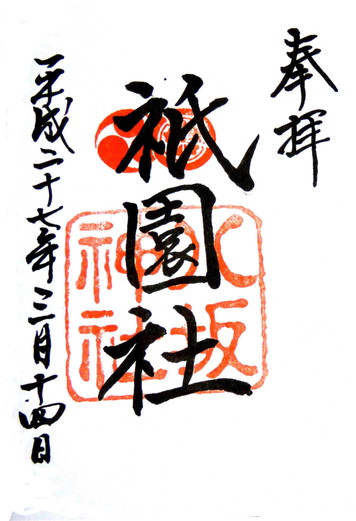 奉拝
祇園社
八坂
神社
平成二十七年三月十四日